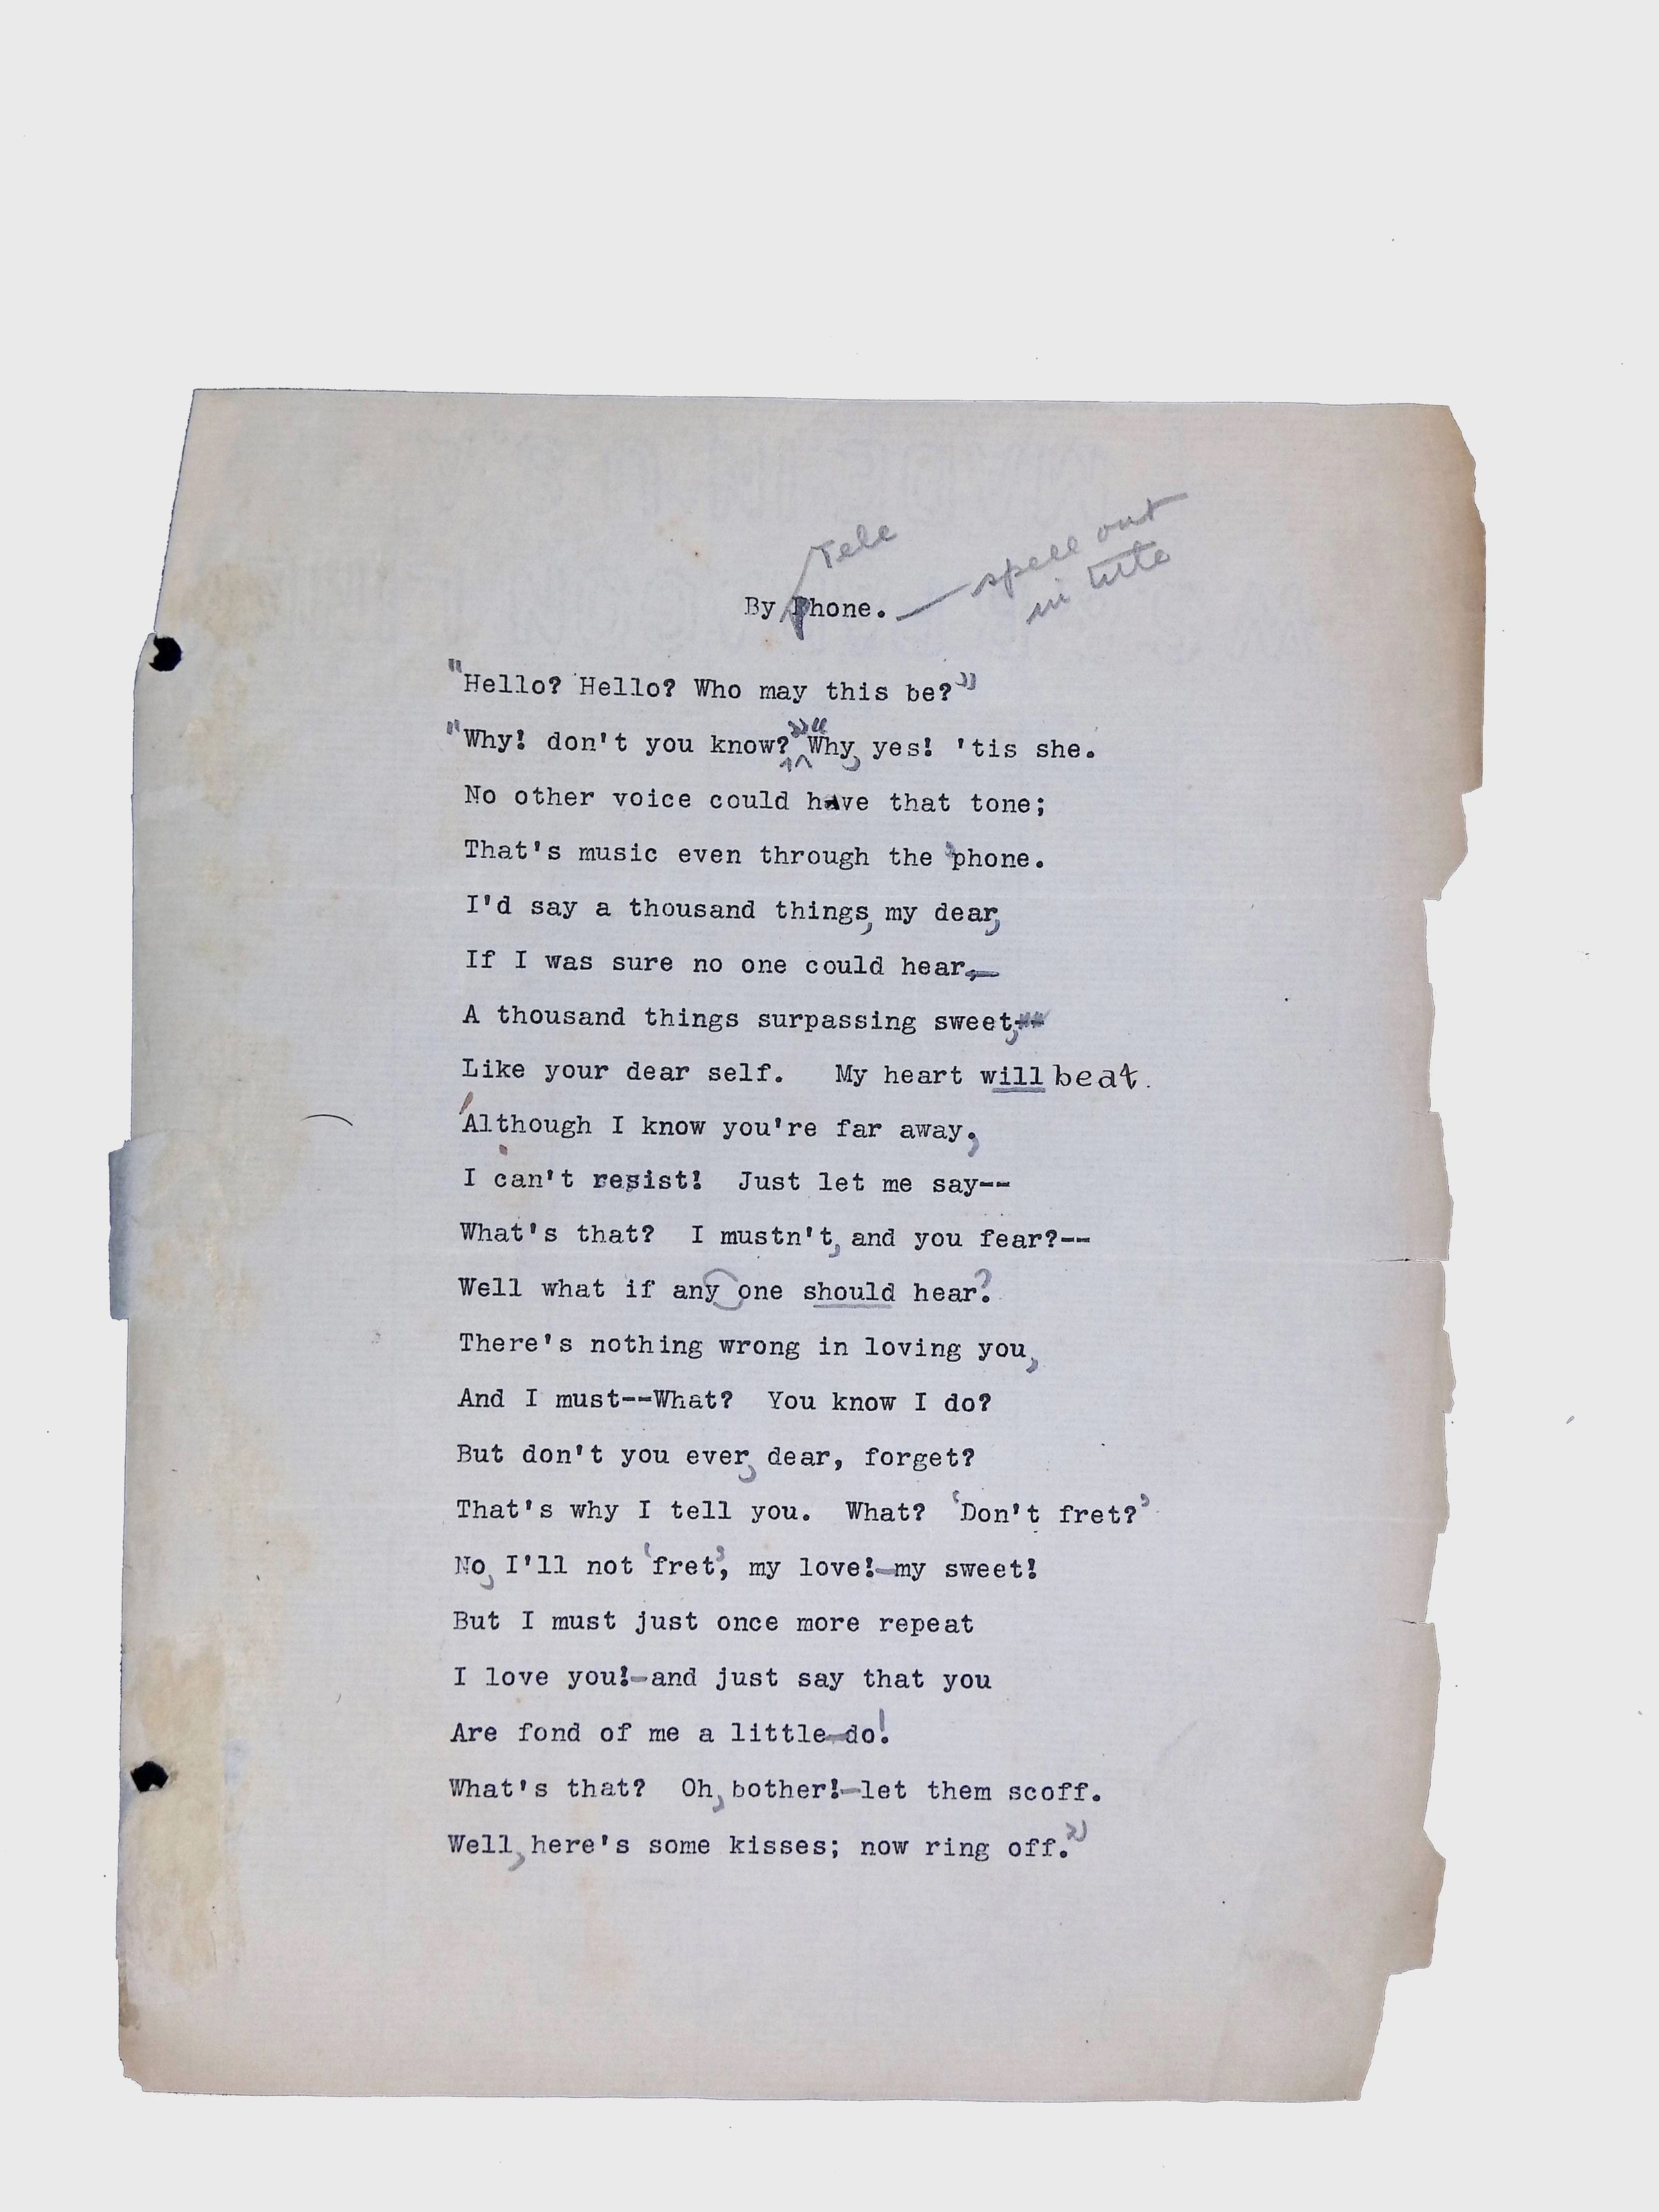 Tele
spell out
in title
By Phone.
"Hello? Hello? Who may this be?"
"Why! don't you know?" "Why, yes! 'tis she.
No other voice could have that tone;
That's music even through the 'phone.
I'd say a thousand things, my dear,
If I was sure no one could hear,—
A thousand things surpassing sweet,--
Like your dear self. My heart will beat.
Although I know you're far away,
I can't resist! Just let me say--
What's that? I mustn't, and you fear?--
Well what if any one should hear?
There's nothing wrong in loving you,
And I must--What? You know I do?
But don't you ever, dear, forget?
That's why I tell you. What? 'Don't fret?'
No, I'll not 'fret', my love!—my sweet!
But I must just once more repeat
I love you!—and just say that you
Are fond of me a little—do!
What's that? Oh, bother!—let them scoff.
Well, here's some kisses; now ring off."